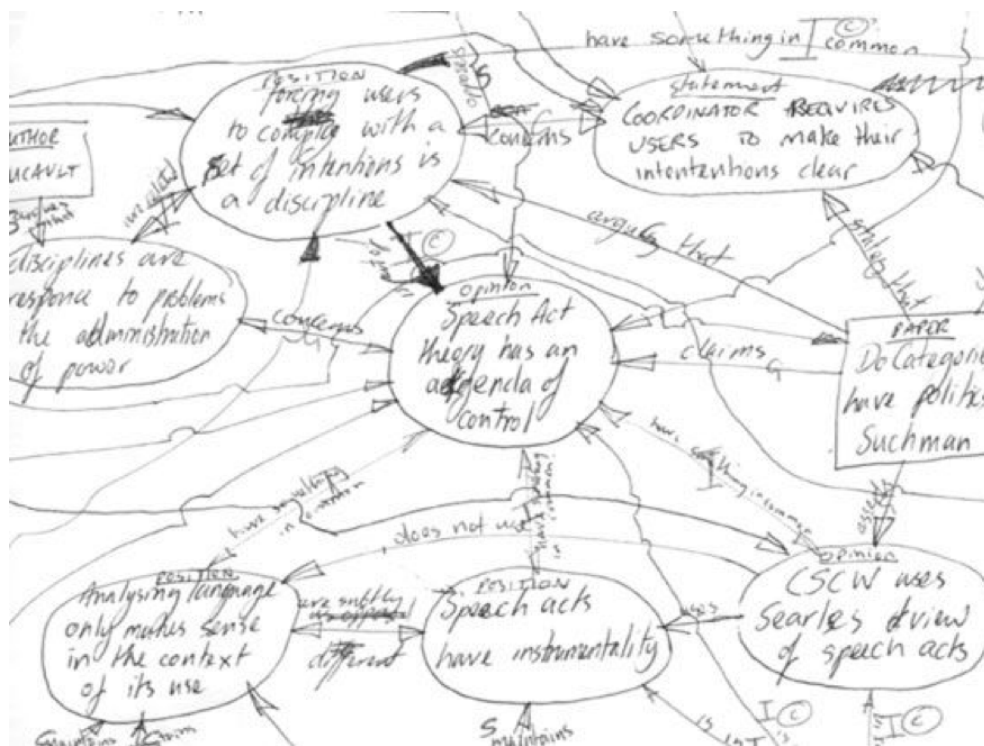 have something in I © common
POSITION
forcing users
to comply with a
set of intentions is
a discipline
concerns
statement
COORDINATOR REQUIRES
USERS TO make their
intententions clear
AUTHOR
UCAULT
are related
disciplines are
responce to problems
the administration
of power
concerns
I ©
opinion
Speech Act
theory has an
agenda of
control
argues that
states that
claims
PAPER
Do Categorie
have politics
Suchman
have something
in common
have something
in common
have something in common
I
asserts
does not use
POSITION
Analysing language
only makes sense
in the context
of its use
are subtley
different
POSITION
Speech acts
have instrumentality
uses
opinion
CSCW uses
Searles view
of speech acts
maintains
S
maintains
is
I ©
I ©